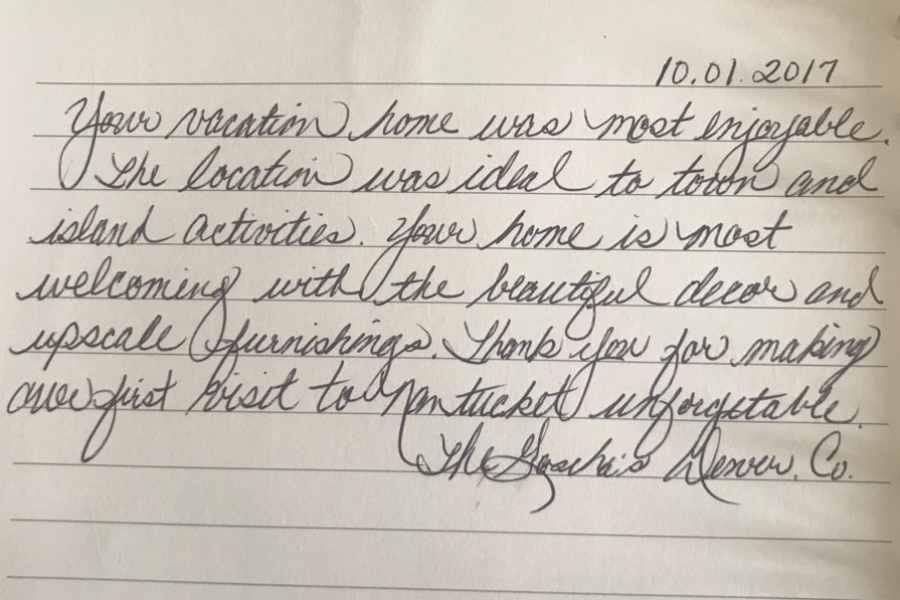 10.01.2017
Your vacation home was most enjoyable.
The location was ideal to town and
island activities. Your home is most
welcoming with the beautiful decor and
upscale furnishings. Thank you for making
our first visit to Nantucket unforgetable.
The Denver, Co.